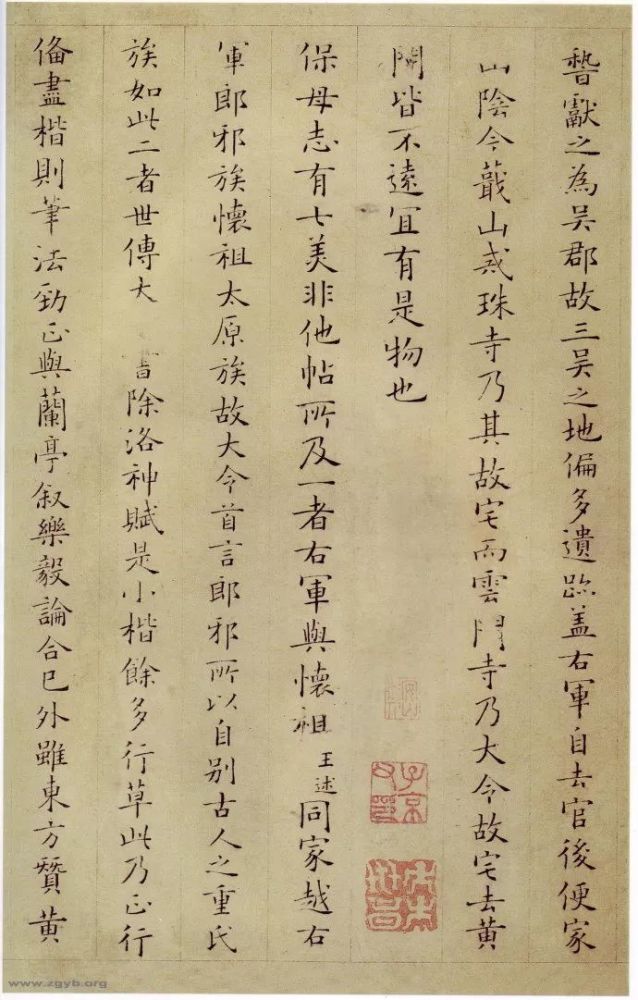 獻之為吳郡故三吳之地偏多遺跡盖右軍自去官後便家
山陰今蕺山戒珠寺乃其故宅而雲門寺乃大令故宅去黃
閍皆不遠冝有是物也
保母志有七美非他帖所及一者右軍與懷祖王述同家越右
軍郎邪族懷祖太原族故大令首言郎邪所以自别古人之重氏
族如此二者世傳大書除洛神賦是小楷餘多行草此乃正行
俻盡楷則筆法勁正與蘭亭叙樂毅論合已外雖東方贊黃
子京父印
www.zgyb.org